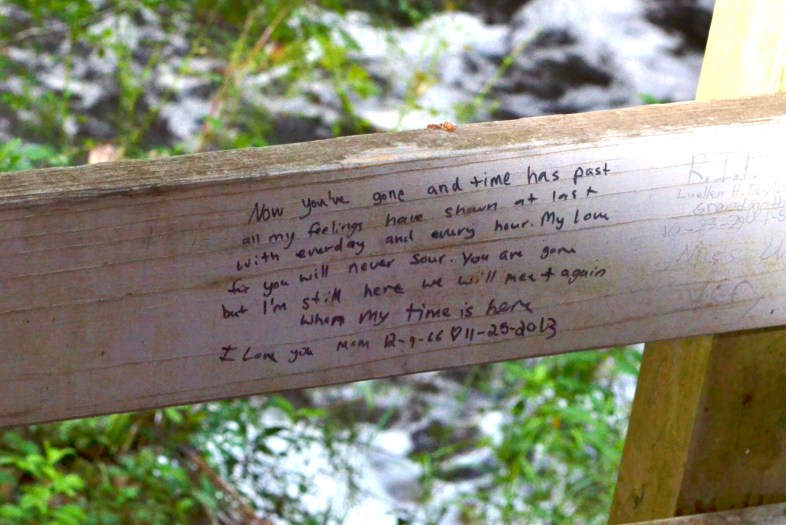 Now you've gone and time has past
all my feelings have shown at last
with everday and every hour. My Love
for you will never sour. You are gone
but I'm still here we will meet again
when my time is here
I Love you Mom 12-9-66 ♡ 11-25-2013
R.I.P.
Luella H.
Grandmother
10-27-29
Miss U